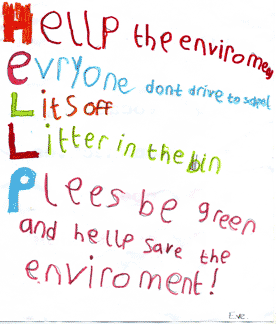 Hellp the enviromey
evryone dont drive to school
Lits off
Litter in the bin
Plees be green
and hellp save the
enviroment!
Eve.